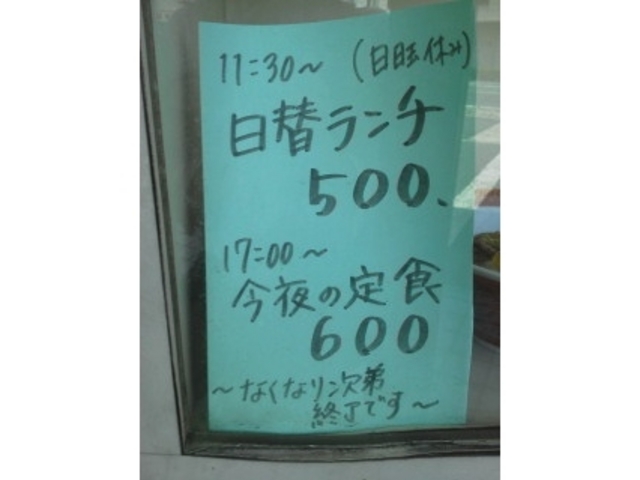 11:30～ (日旺休み)
日替ランチ
500、
17:00～
今夜の定食
600
～なくなり次第
終了です～